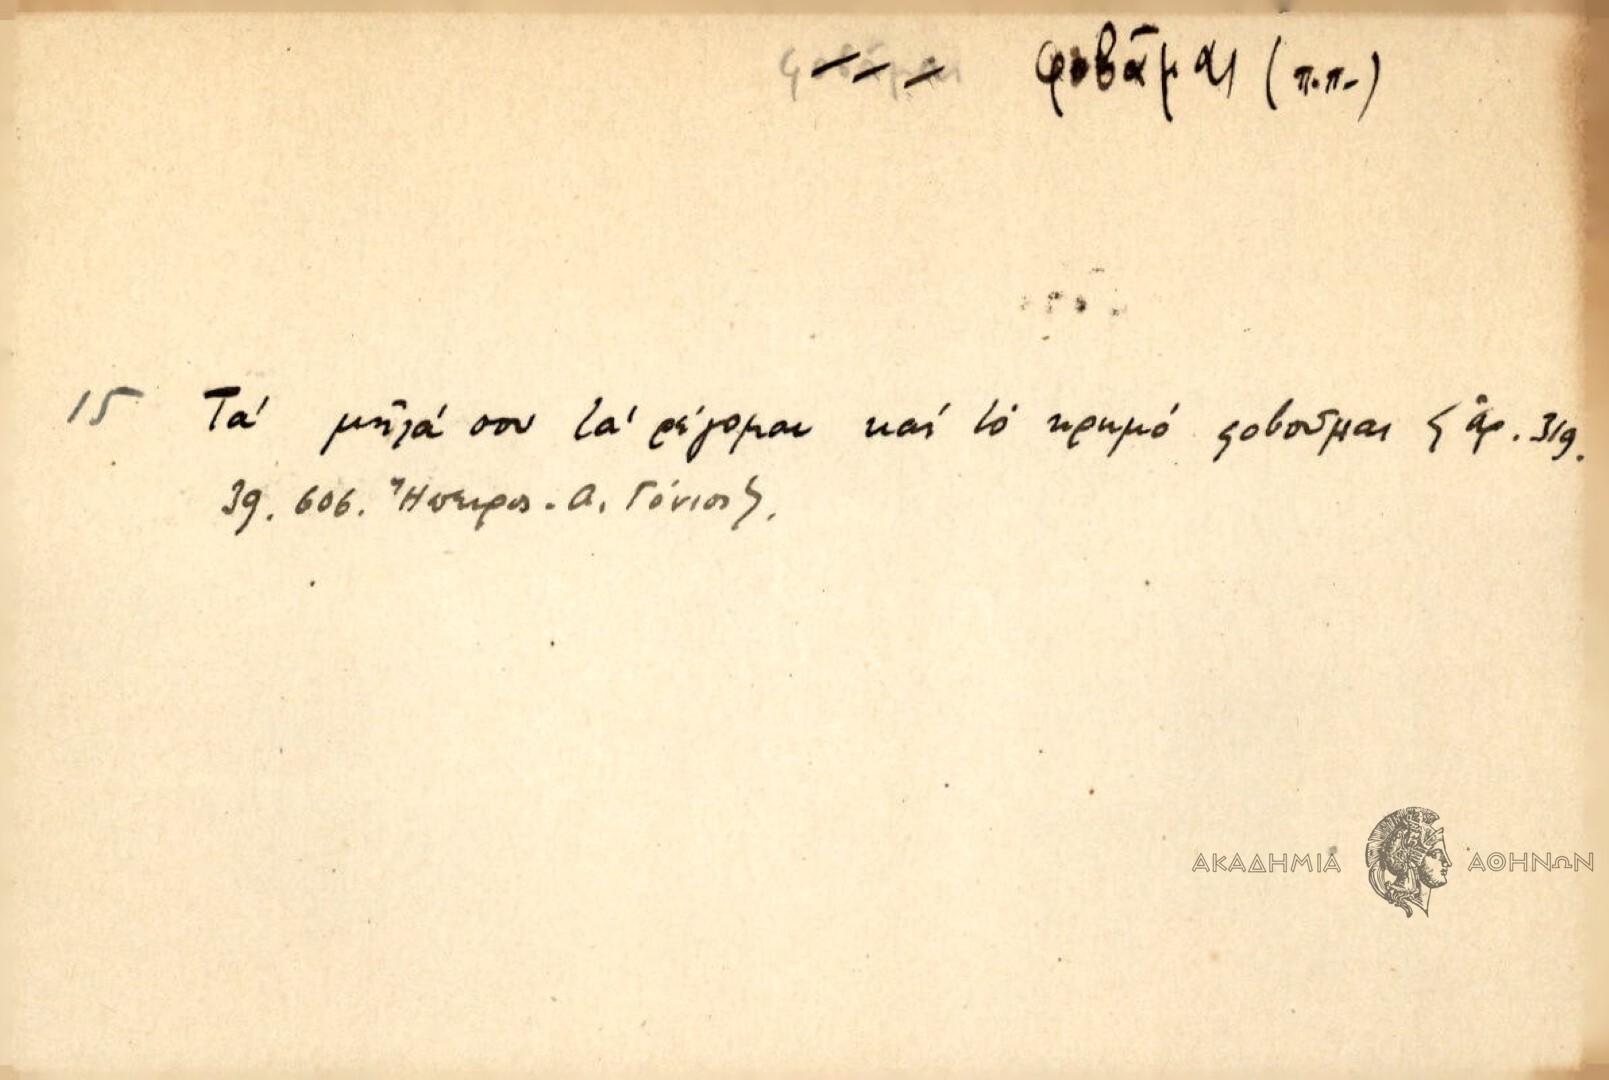 φοβᾶμαι (π.π.)
15 Τά μῆλά σου τά ρέγομαι καί τό κρημό φοβοῦμαι ζ ἀρ. 319.
39. 606. Ἤπειρος. Α. Γόνιος ζ.
ΑΚΑΔΗΜΙΑ ΑΘΗΝΩΝ